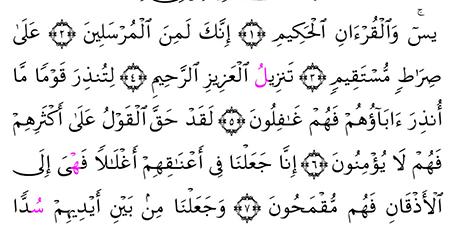 يسٓ وَٱلْقُرْءَانِ ٱلْحَكِيمِ ﴿١﴾ إِنَّكَ لَمِنَ ٱلْمُرْسَلِينَ ﴿٢﴾ عَلَىٰ
صِرَٰطٍ مُّسْتَقِيمٍ ﴿٣﴾ تَنزِيلُ ٱلْعَزِيزِ ٱلرَّحِيمِ ﴿٤﴾ لِتُنذِرَ قَوْمًا مَّا
أُنذِرَ ءَابَآؤُهُمْ فَهُمْ غَٰفِلُونَ ﴿٥﴾ لَقَدْ حَقَّ ٱلْقَوْلُ عَلَىٰٓ أَكْثَرِهِمْ
فَهُمْ لَا يُؤْمِنُونَ ﴿٦﴾ إِنَّا جَعَلْنَا فِىٓ أَعْنَٰقِهِمْ أَغْلَٰلًا فَهْىَ إِلَى
ٱلْأَذْقَانِ فَهُم مُّقْمَحُونَ ﴿٧﴾ وَجَعَلْنَا مِنۢ بَيْنِ أَيْدِيهِمْ سُدًّا